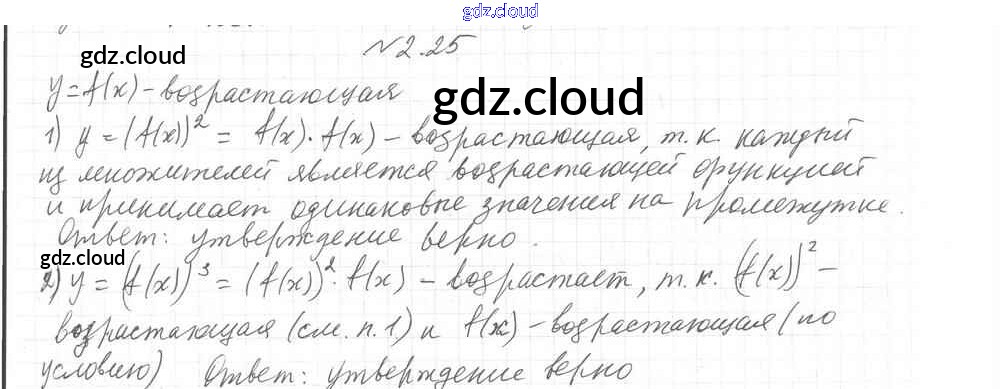 gdz.cloud
№2.25
gdz.cloud
y=f(x)-возрастающая
gdz.cloud
1) y=(f(x))² = f(x)·f(x) – возрастающая, т.к. каждый
из множителей является возрастающей функцией
и принимает одинаковые значения на промежутке.
Ответ: утверждение верно.
gdz.cloud
2) y=(f(x))³=(f(x))²·f(x) – возрастает, т.к. (f(x))² –
возрастающая (см. п. 1) и f(x)-возрастающая (по
условию) Ответ: утверждение верно